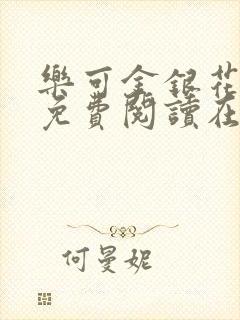 樂可金銀花
免費閱讀在
何曼妮